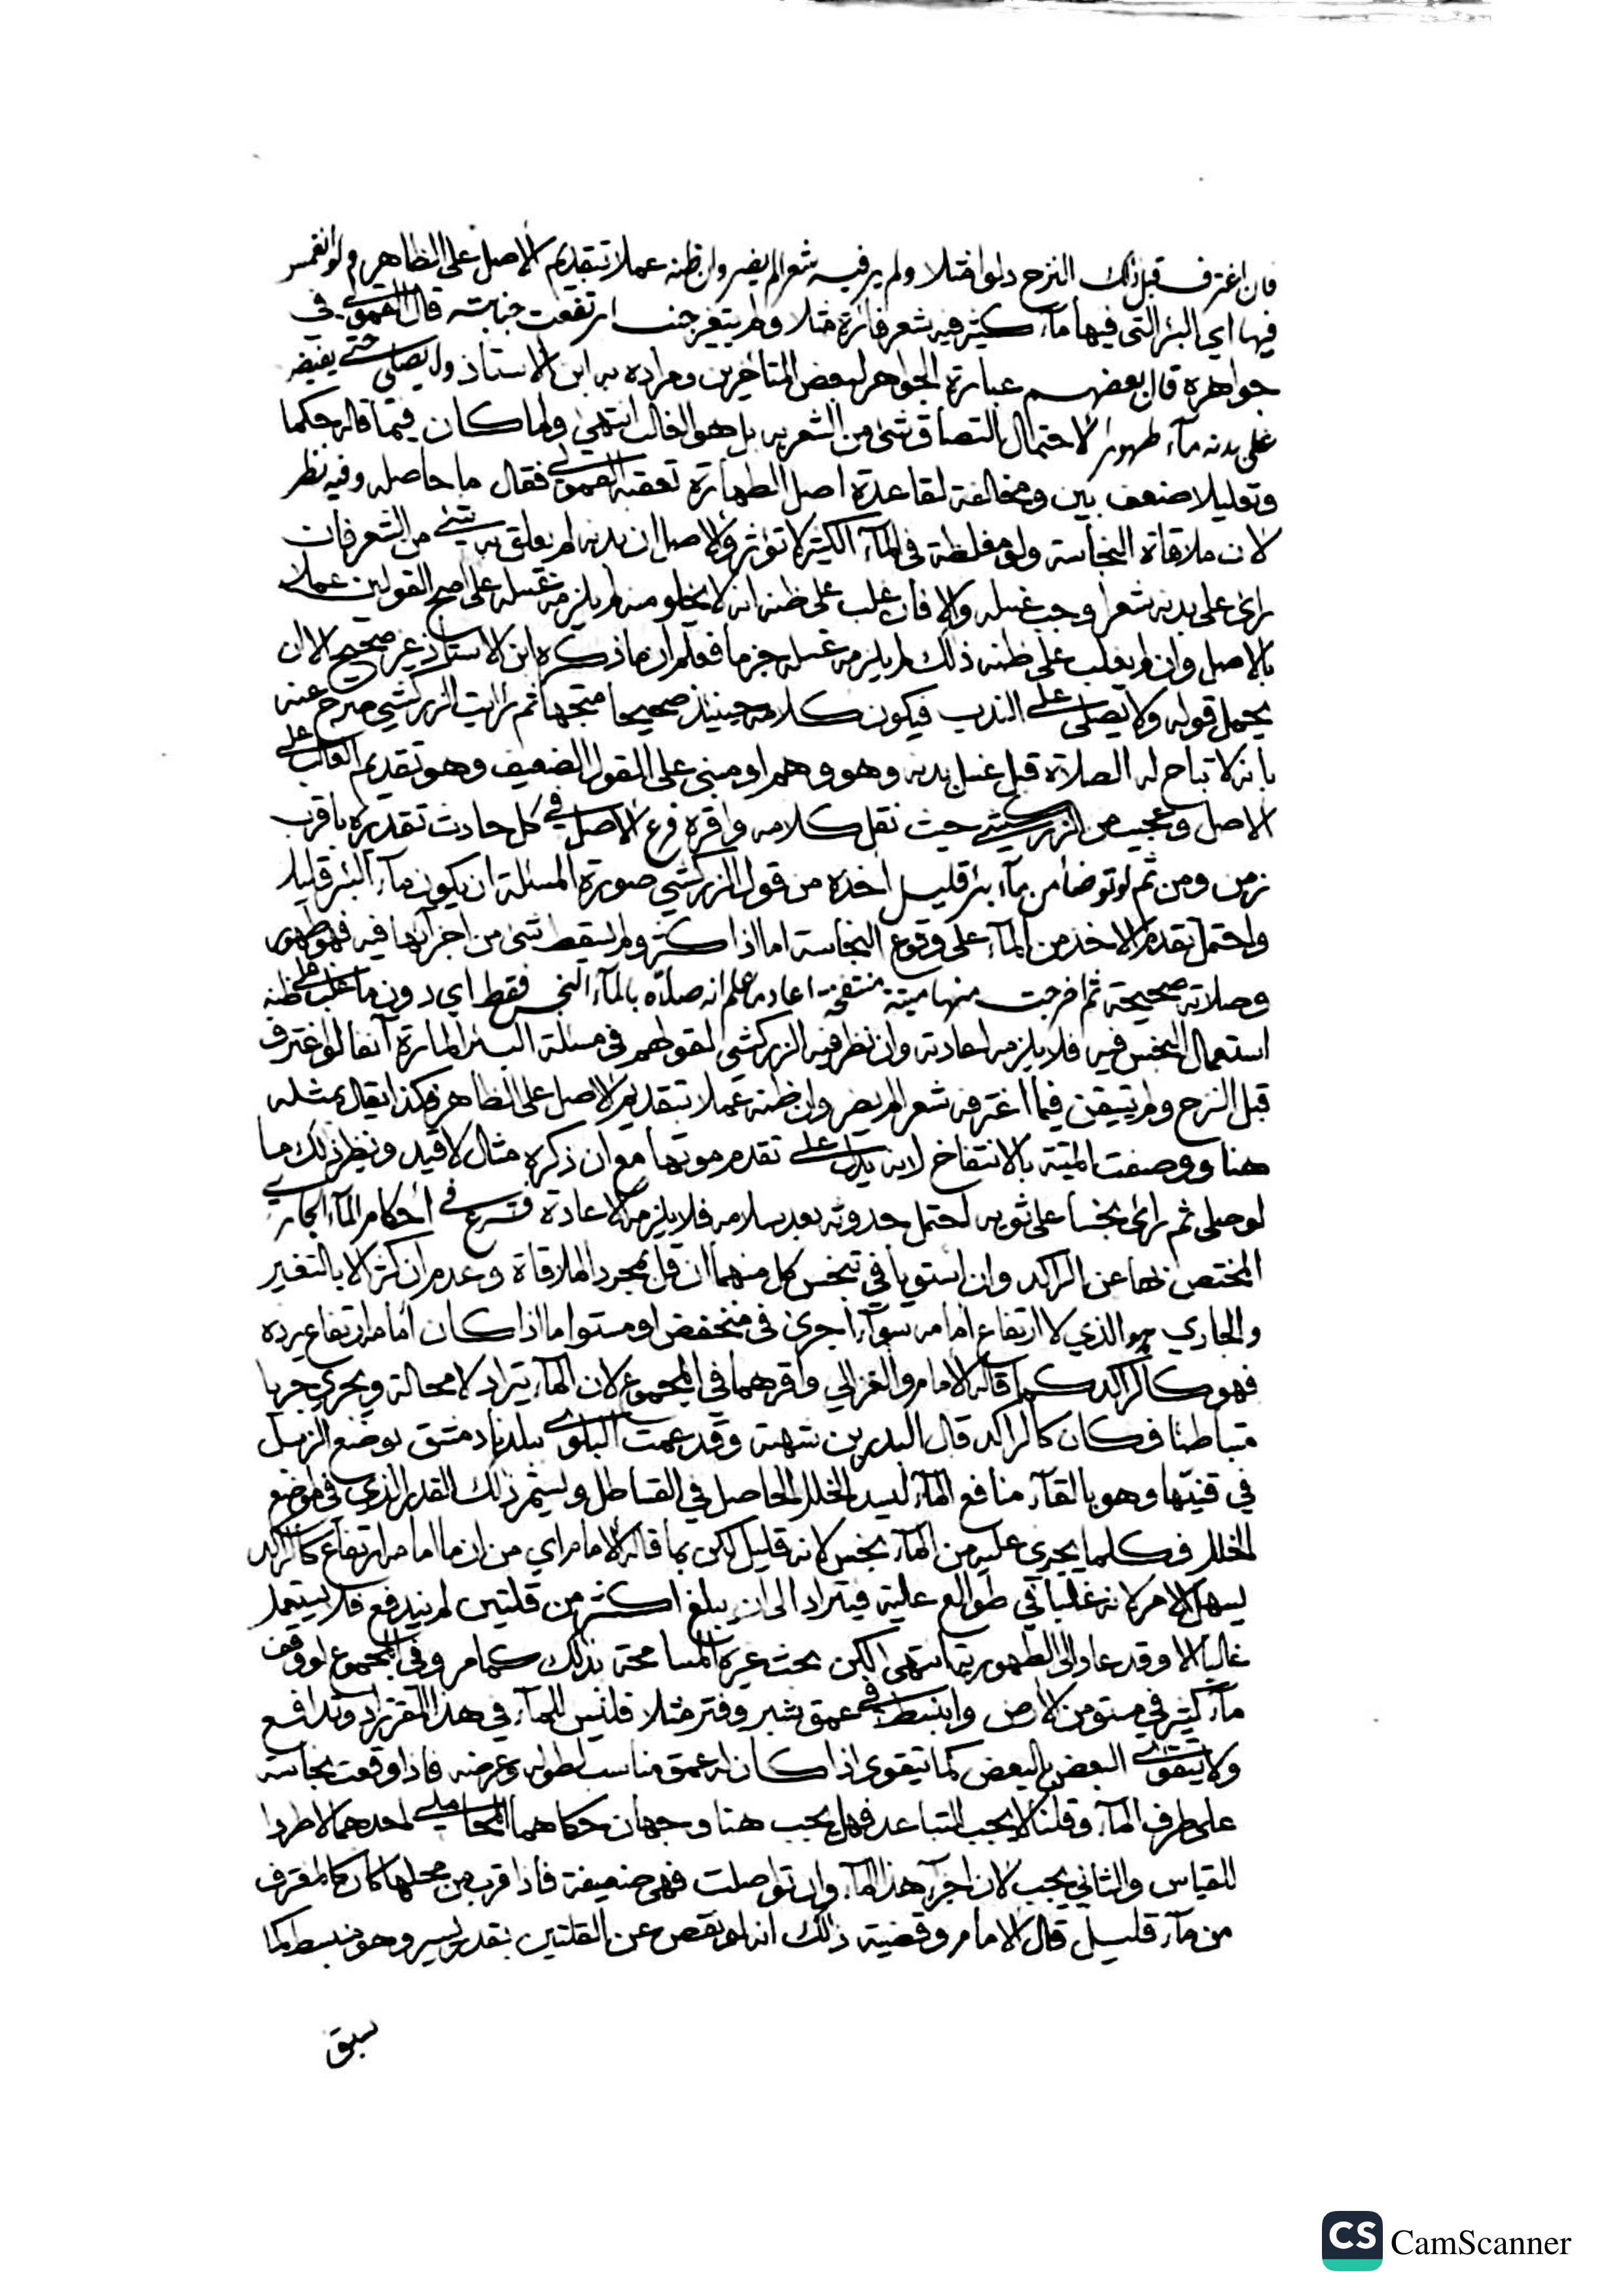 فان اغترف قبل ذلك النزح دلوا مثلا ولم ير فيه شعرا لم يضر وان ظنه عملا بتقديم الاصل على الظاهر ولو انغمس
فيها اي البئر التي فيها مآء كثير فيه شعر فارة مثلا ولم يتغير جنب ارتفعت جنابته قال القمولي في
جواهره قال بعضهم عبارة الجواهر لبعض المتاخرين ومراده به ابن الاستاذ ولا يصلي حتى يفيض
على بدنه مآء طهورا لاحتمال التصاق شئ من الشعر به بل هو الغالب انتهى ولما كان فيما قاله حكما
وتعليلا ضعف بين ومخالفة لقاعدة اصل الطهارة تعقبه القمولي فقال ما حاصله وفيه نظر
لان ملاقاة النجاسة ولو مغلظة في المآء الكثير لا تؤثر والاصل ان بدنه لم يعلق به شئ من الشعر فان
رائ على بدنه شعرا وجب غسله والا فان غلب على ظنه انه لا يخلو منه لم يلزمه غسله على اصح القولين عملا
بالاصل وان لم يغلب على ظنه ذلك لم يلزمه غسله جزما فعلم ان ما ذكره ابن الاستاذ غير صحيح الا ان
يحمل قوله ولا يصلي على الندب فيكون كلامه حينئذ صحيحا متجها ثم رايت الزركشي صرح عنه
بانه لا تباح له الصلاة قبل غسل بدنه وهو وهم او مبني على القول الضعيف وهو تقديم الغالب على
الاصل وعجيب من الزركشي حيث نقل كلامه واقره فرع الاصل في كل حادث تقديره باقرب
زمن ومن ثم لو توضأ من مآء بئر قليل اخذه من قول الزركشي صورة المسئلة ان يكون مآء البئر قليلا
واحتمل تقدم الاخذ من المآء على وقوع النجاسة اما اذا كثر ولم يسقط شئ من اجزآئها فيه فهو طهور
وصلاته صحيحة ثم اخرجت منها ميتة منتفخة اعاد ما علم انه صلاه بالمآء النجس فقط اي دون ما غلب على ظنه
استعمال النجس فيه فلا يلزمه اعادته وان نظر فيه الزركشي لقولهم في مسئلة البئر المارة آنفا لو اغترف
قبل النزح ولم يتيقن فيما اغترفه شعرا لم يضر وان ظنه عملا بتقديم الاصل على الظاهر فكذا يقال بمثله
هنا ووصفت الميتة بالانتفاخ لانه يدل على تقدم موتها مع ان ذكره مثال لا قيد ونظير ذلك ما
لو صلى ثم رائ نجسا على ثوبه احتمل حدوثه بعد سلامه فلا يلزمه الاعادة فرع في أحكام المآء الجاري
المختص بها عن الراكد وان استويا في تنجس كل منهما ان قل بمجرد الملاقاة وعدمه ان كثر الا بالتغير
والجاري هو الذي لا ارتفاع امامه سوآء أجرى في منخفض او مستو اما اذا كان أمامه ارتفاع يرده
فهو كالراكد كما قاله الامام والغزالي واقرهما في المجموع لان المآء يتراد لا محالة ويجري جريا
متباطئا فكان كالراكد قال البدر بن شهبة وقد عمت البلوى ببلدنا دمشق بوضع الزبل
في قنيّها وهو بالقآء منافع المآء ليسد الخلل الحاصل في القساطل ويستمر ذلك القدر الذي في موضع
الخلل فكلما يجري عليه من المآء نجس لانه قليل لكن بما قاله الامام اي من ان ما امامه ارتفاع كالراكد
يسهل الامر لانه غالبا في طوالع علية فيتراد الى ان يبلغ اكثر من قلتين لم يندفع فلا يستعمل
غالبا الا وقد عاد الى الطهورية انتهى لكن بحث غيره المسامحة بذلك كما مر وفي المجموع لو وقف
مآء كثير في مستو من الارض وانبسط في عمق شبر وفتر مثلا فليس للمآء في هذا المقر تراد وتدافع
ولا يتقوى البعض بالبعض كما يتقوى اذا كان له عمق مناسب لطوله وعرضه فاذا وقعت نجاسة
على طرف المآء وقلنا لا يجب التباعد فهل يجب هنا وجهان حكاهما المحاملي احدهما لا طردا
للقياس والثاني يجب لان اجزآء هذا المآء وان تواصلت فهي ضعيفة فاذا قرب من محلها كان كالمغترف
من مآء قليل قال الامام وقضية ذلك انه لو نقص عن القلتين بقدر يسير وهو منبسط كما
سبق
CS CamScanner